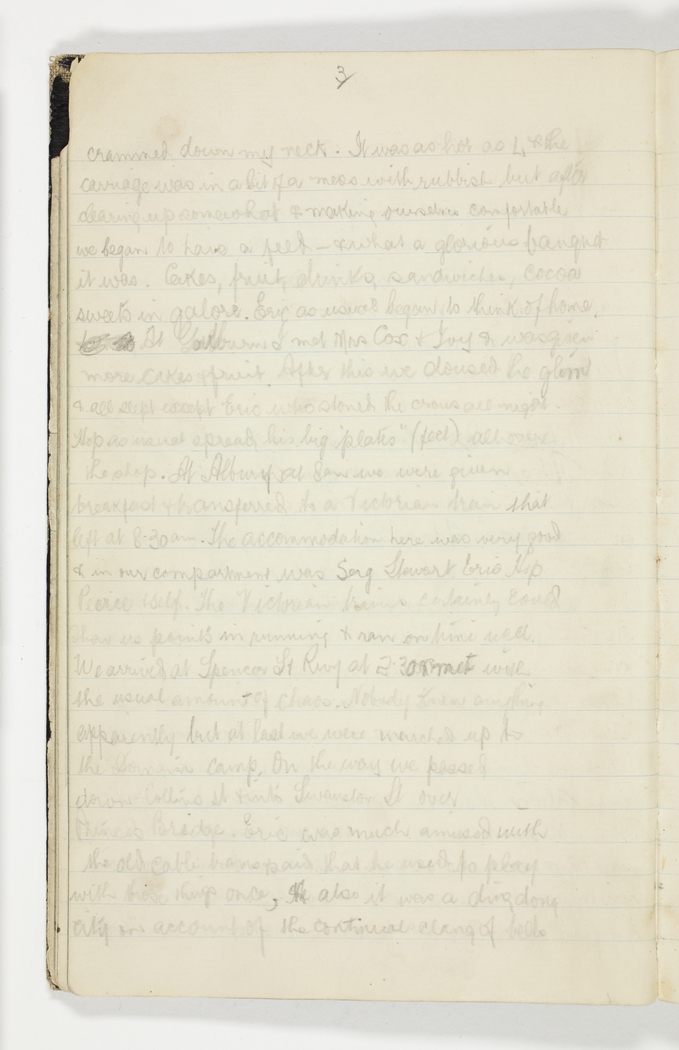 3
crammed down my neck. It was as hot as L, & the
carriage was in a bit of a mess with rubbish but after
clearing up somewhat & making ourselves comfortable
we began to have a feed - & what a glorious banquet
it was. Cakes, fruit, drinks, sandwiches, cocoa
sweets in galore. Eric as usual began to think of home.
At Goulburn I met Mrs Cox & Ivy & was given
more cakes & fruit. After this we doused the glim
& all slept except Eric who stoned the crows all night.
as usual spread his big "plates" (feet) all over
the shop. At Albury at 8am we were given
breakfast & transferred to a Victorian train that
left at 8-30 am. The accommodation here was very good
& in our compartment was Serg Stewart Eric
& self. The Victorian trains certainly could
show us points in running & ran on time
We arrived at Spencer St at 2-30 & met with
the usual amount of chaos. Nobody knew anything
apparently but at last we were marched up to
the camp. On the way we passed
down Collins St & into Swanston St over
Princes Bridge. Eric was much amused with
the old cable trams & said that he used to play
with those things once, also it was a ding dong
city on account of the continual clang of bells